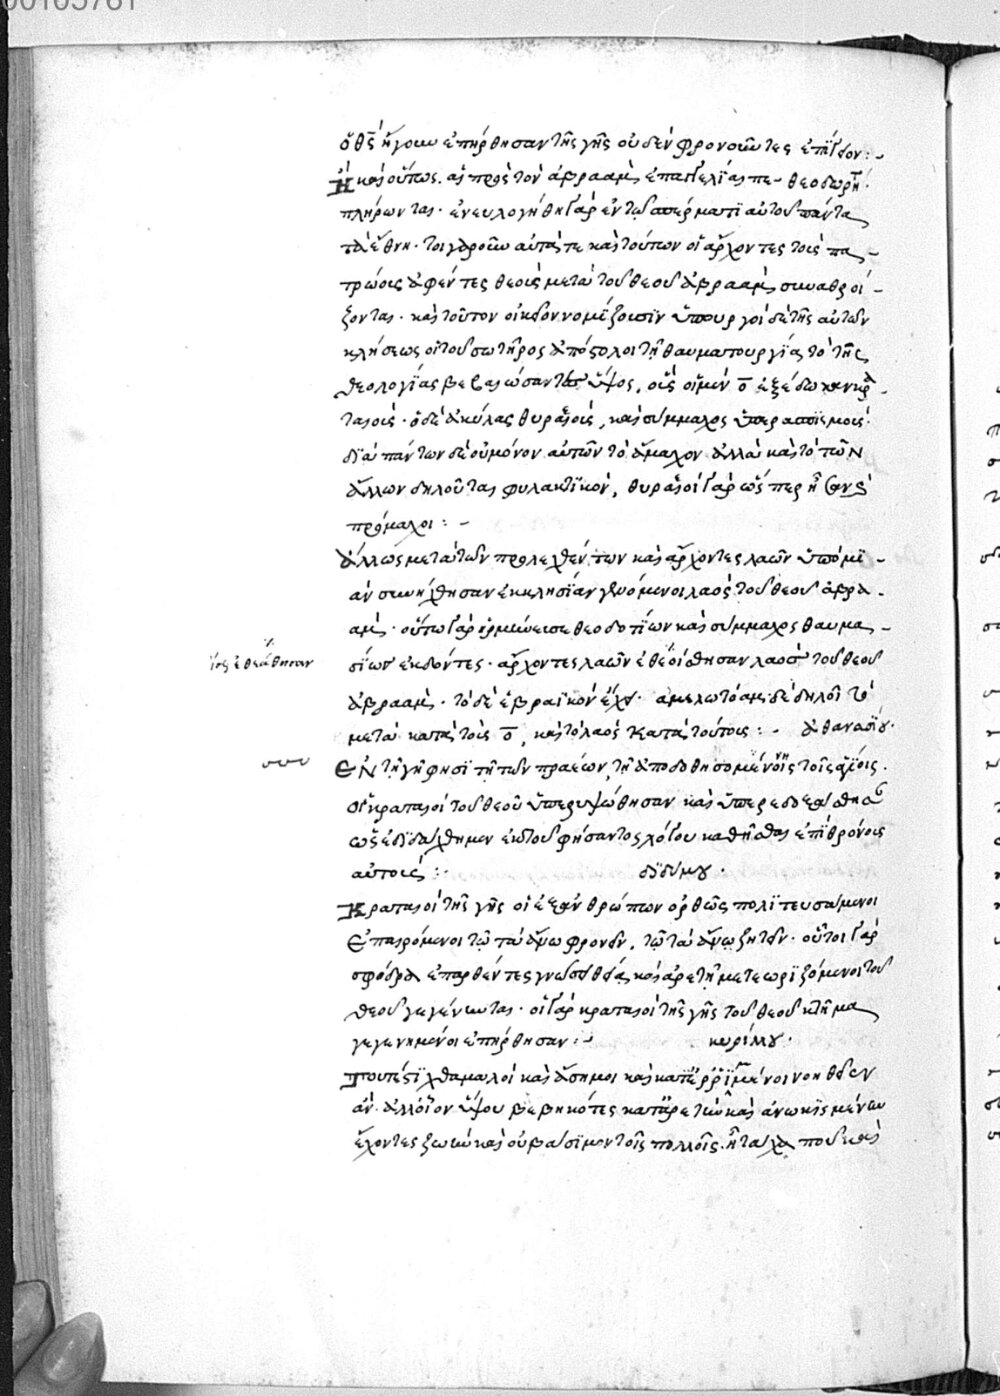 00105761
ὅθεν ἤγουν ἐπήρθησαν τῆς γῆς οὐδὲν φρονοῦντες ἐπίγειον :-
Ἢ καὶ οὕτως. αἱ πρὸς τὸν ἀβραὰμ ἐπαγγελίαι πε- θεοδωρή.
πλήρωνται· ἐνευλογήθη γὰρ ἐν τῷ σπέρματι αὐτοῦ πάντα
τὰ ἔθνη· τοιγαροῦν αὐτά τε καὶ τούτων οἱ ἄρχοντες τοὺς πα-
τρώους ἀφέντες θεοὺς μετὰ τοῦ θεοῦ ἀβραὰμ συναθροί-
ζονται· καὶ τοῦτον οἰκεῖον νομίζουσιν ὑπουργοὶ δὲ τῆς αὐτῶν
κλήσεως οἱ τοῦ σωτῆρος ἀπόστολοι τῇ θαυματουργίᾳ τὸ τῆς
θεολογίας βεβαιώσαντες ὕψος, οὓς οἱ μὲν ο ἐξέδωκαν κρα
ταιούς· ὁ δὲ ἀκύλας θυρεούς, καὶ σύμμαχος ὑπερασπισμούς·
διὰ πάντων δὲ οὐ μόνον αὐτῶν τὸ ἄμαχον ἀλλὰ καὶ τὸ τῶν
ἄλλων δηλοῦται φυλακτικόν, θυρεοὶ γὰρ ὥσπερ
πρόμαχοι : -
Ἄλλως μετὰ τῶν προλεχθέντων καὶ ἄρχοντες λαῶν ὑπὸ μί-
αν συνήχθησαν ἐκκλησίαν γενόμενοι λαὸς τοῦ θεοῦ ἀβρα-
άμ· οὕτω γὰρ ἑρμηνεύεισι θεοδοτίων καὶ σύμμαχος θαυμα-
ἐθεάθησαν
σίως ἐκδόντες· ἄρχοντες λαῶν ἐθεόθησαν λαὸς τοῦ θεοῦ
ἀβραάμ· τὸ δὲ ἑβραϊκὸν ἔχει· δὲ δηλοῖ τὸ
μετὰ κατὰ τοὺς ο, καὶ τὸ λαὸς κατὰ τούτους : - ἀθανασίου.
Ἐν τῇ γῇ φησὶ τῇ τῶν πραέων, τῇ ἀποδοθησομένῃ τοῖς ἁγίοις.
οἱ κραταιοὶ τοῦ θεοῦ ὑπερυψώθησαν καὶ ὑπερεδοξάσθησαν
ὡς ἐδιδάχθημεν ἐκ τοῦ φήσαντος λόγου καθῆσθαι ἐπὶ θρόνους
αὐτούς : διδύμου.
Κραταιοὶ τῆς γῆς οἱ ἐξ ἀνθρώπων ὀρθῶς πολιτευσάμενοι
ἐπαιρόμενοι τῷ τὰ ἄνω φρονεῖν, τῷ τὰ ἄνω ζητεῖν· οὗτοι γὰρ
σφόδρα ἐπαρθέντες γνώσει θεία καὶ ἀρετῇ μετεωριζόμενοι τοῦ
θεοῦ γεγένωνται· οἱ γὰρ κραταιοὶ τῆς γῆς τοῦ θεοῦ κτῆμα
γεγενημένοι ἐπήρθησαν :- κυρίλλου.
Τουτέστι χθαμαλοὶ καὶ ἄσημοι καὶ κατερριμμένοι νοηθεῖεν
ἄν· ἀλλ' οἷον ὕψου βεβηκότες κατ' ἀρετὴν καὶ ἀνωκισμένην
ἔχοντες ζωὴν καὶ οὐ βάσιμον τοῖς πολλοῖς· ἢ τάχα που καὶ